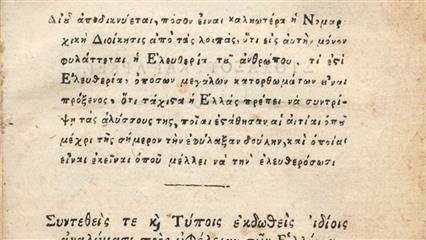 Δι' οὗ ἀποδεικνύεται, πόσον εἶναι καλητέρα ἡ Νομαρ-
χικὴ Διοίκησις ἀπὸ τὰς λοιπάς, ὅτι εἰς αὐτὴν μόνον
φυλάττεται ἡ Ἐλευθερία τοῦ ἀνθρώπου, τί ἐστὶ
Ἐλευθερία, ὁπόσων μεγάλων κατορθωμάτων εἶναι
πρόξενος, ὅτι τάχιστα ἡ Ἑλλὰς πρέπει νὰ συντρί-
ψῃ τὰς ἁλύσους της, ποῖαι ἐστάθησαν αἱ αἰτίαι ὁποῦ
μέχρι τῆς σήμερον τὴν ἐφύλαξαν δούλην, καὶ ὁποῖαι
εἶναι ἐκεῖναι ὁποῦ μέλλει νὰ τὴν ἐλευθερώσωσι
Συντεθείς τε καὶ Τύποις ἐκδοθεὶς ἰδίοις
ἀναλώμασι πρὸς ὠφέλειαν τῶν Ἑλλήνων